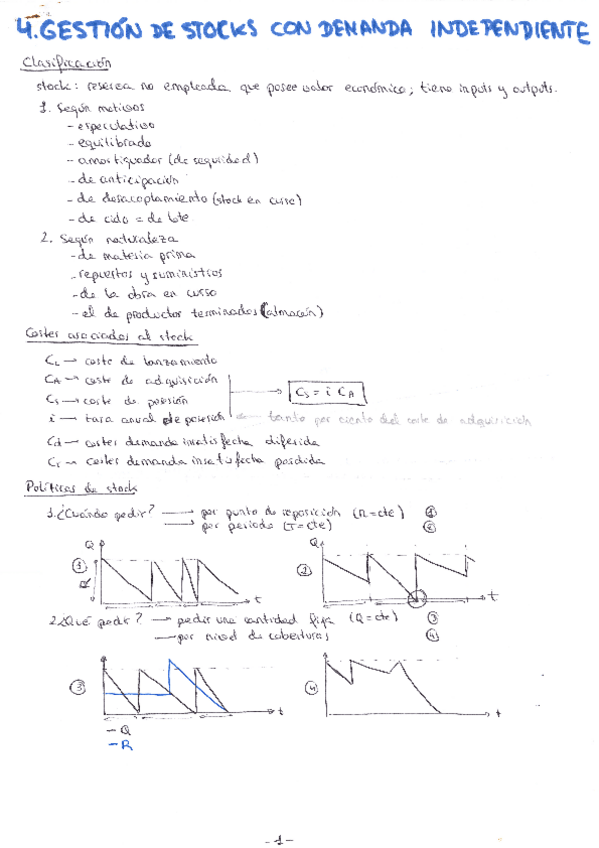 4. GESTIÓN DE STOCKS CON DEMANDA INDEPENDIENTE
Clasificación
stock: reserva no empleada que posee valor económico; tiene inputs y outputs.
1. Según motivos
- especulativo
- equilibrado
- amortiguador (de seguridad)
- de anticipación
- de desacoplamiento (stock en curso)
- de ciclo = de lote
2. Según naturaleza
- de materia prima
- repuestos y suministros
- de la obra en curso
- el de productor terminados (almacén)
Costes asociados al stock
CL → coste de lanzamiento
CA → coste de adquisición
Cs → coste de posesión
Cs = i CA
i → tasa anual de posesión ← tanto por ciento del coste de adquisición
Cd → costes demanda insatisfecha diferida
Cr → costes demanda insatisfecha perdida
Políticas de stock
1. ¿Cuándo pedir? → por punto de reposición (R = cte) ①
→ por periodo (T = cte) ②
Q
① R t
Q
② t
2. ¿Qué pedir? → pedir una cantidad fija (Q = cte) ③
→ por nivel de coberturas ④
③ t
④ t
- Q
- R
- 1 -